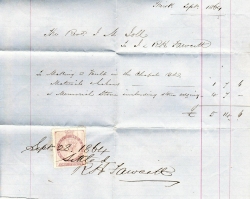 Sept 1864
The Revd J. M. Jolly
To J. & R. H. Fawcett
To Making a Vault in the Chapel
Materials & labour 1 7 6
a Memorial Stone including the 4 7 -
£ 5 14 6
Sept 22. 1864
Settled
R H Fawcett